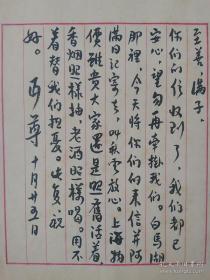 至善、满子：
你们的信收到了，我们都已
安心，望勿再紧挂我们。白马湖
那里，今天将你们的来信并阿
满日记寄去，叫秋云放心。上海物
价虽贵，大家还是照旧活着，
香烟照样抽，老酒照样喝。用不
着替我们担忧。此复，祝
好。 丏尊 十月廿五日